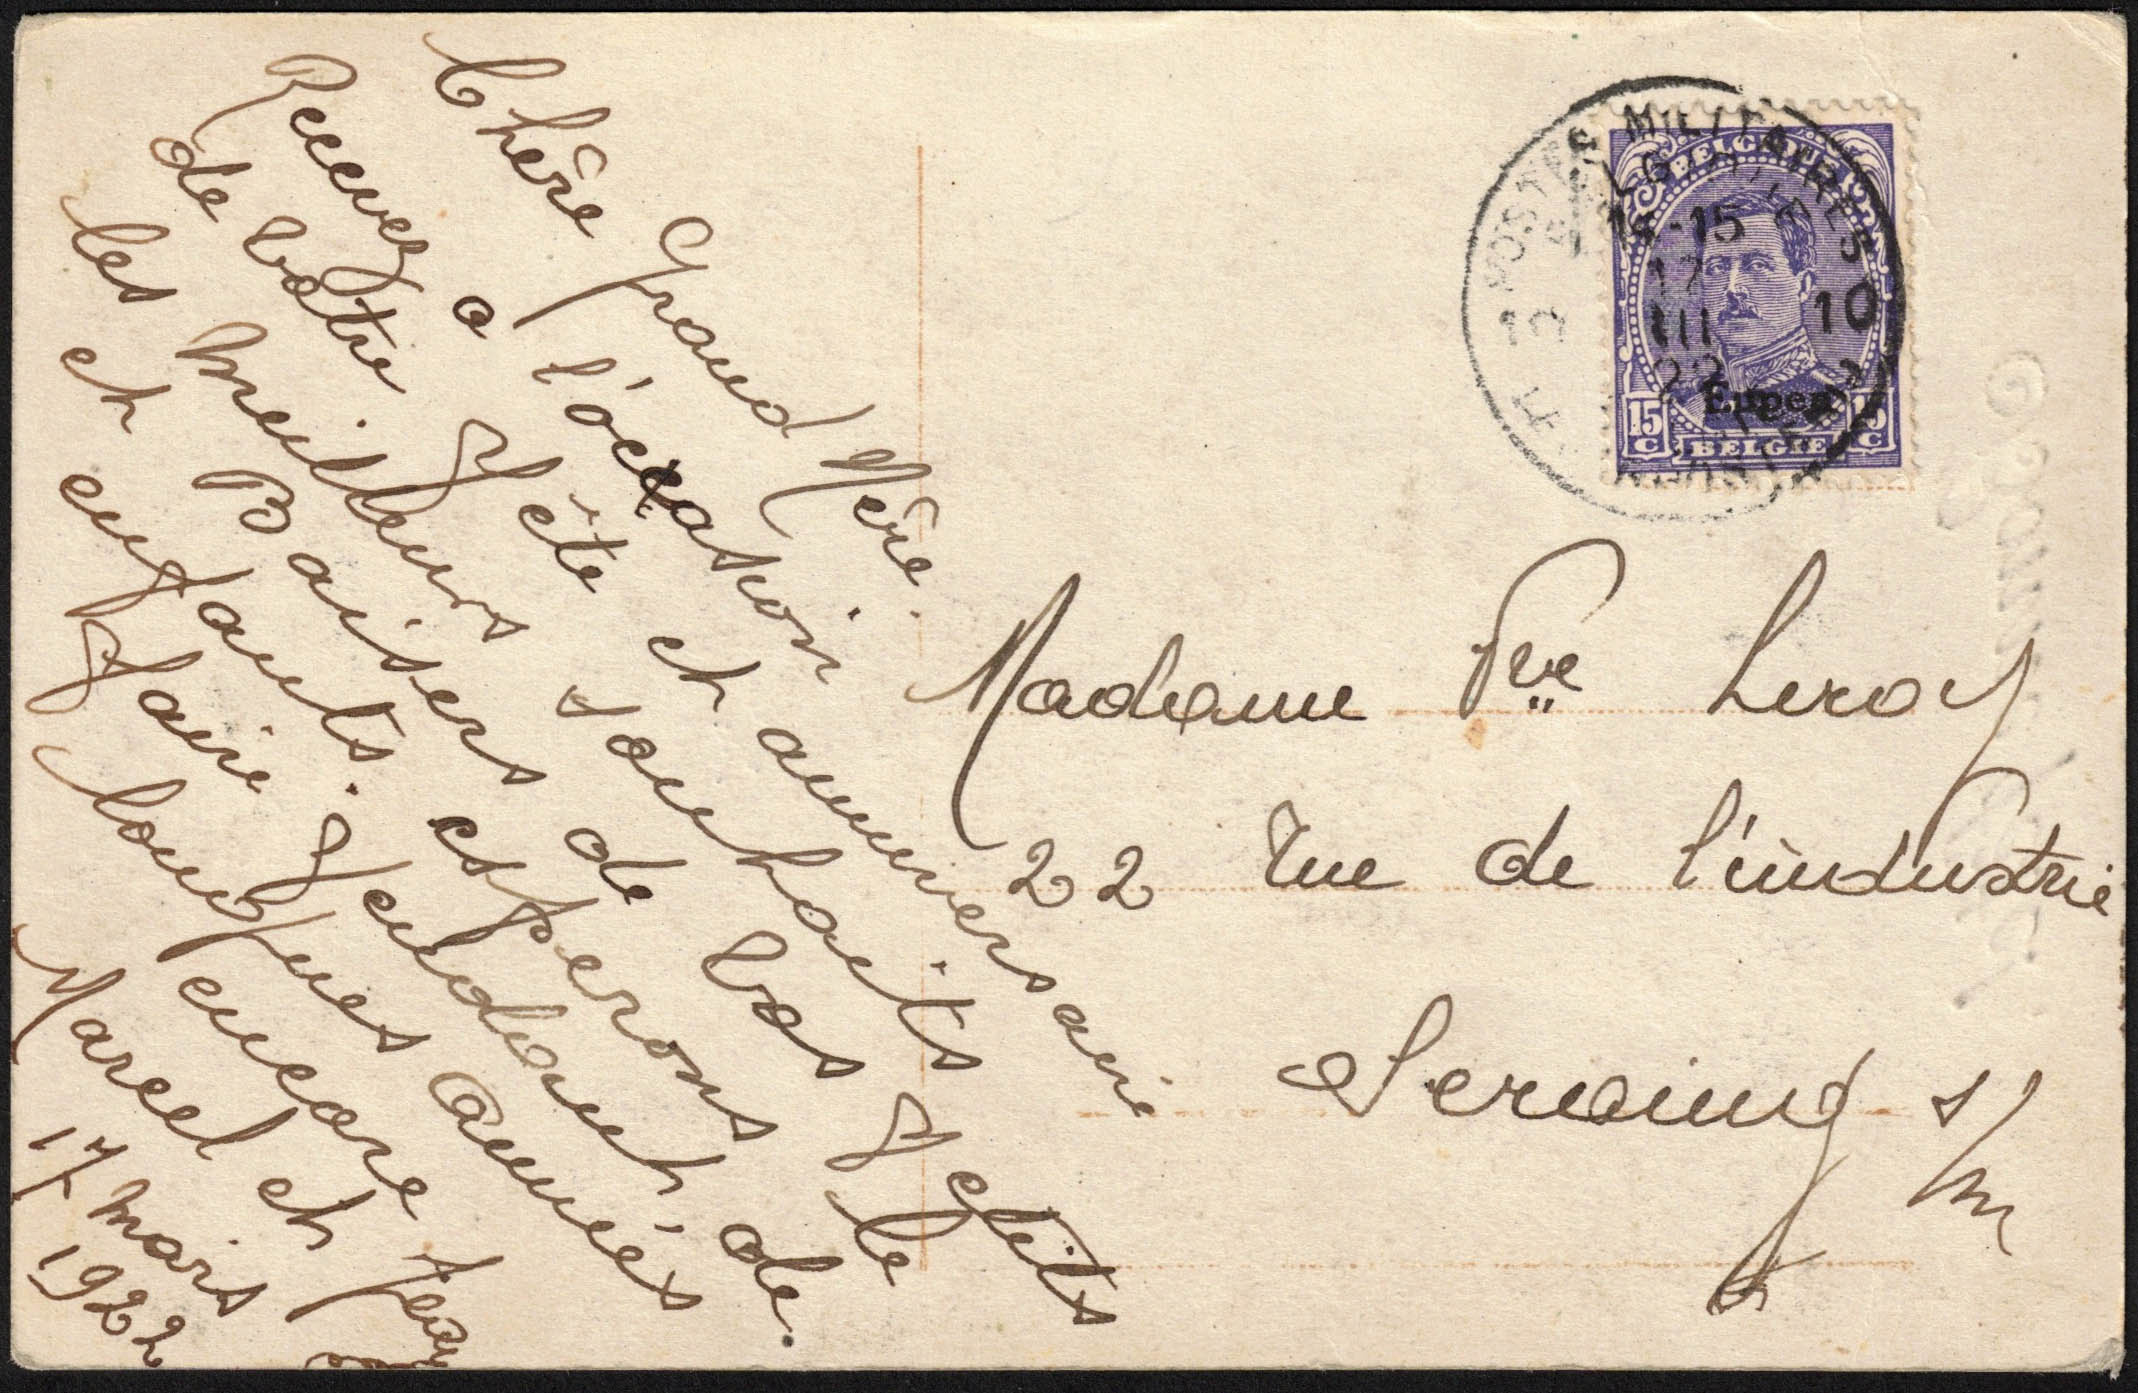 Chère Grand Mère.
Recevez a l'occasion
de Votre Fête et anniversaire
les meilleurs souhaits
et Baisers de vos Petits
enfants. esperons le
faire Pendant de
Longues années
encore
Marcel et Jean
17 Mars
1922
POSTES MILITAIRES
BELGIQUE
15
17
III
22
10
10
Eupen
15 C
15 C
BELGIË
Madame Vve Leroy
22 rue de l'industrie
Seraing s/m